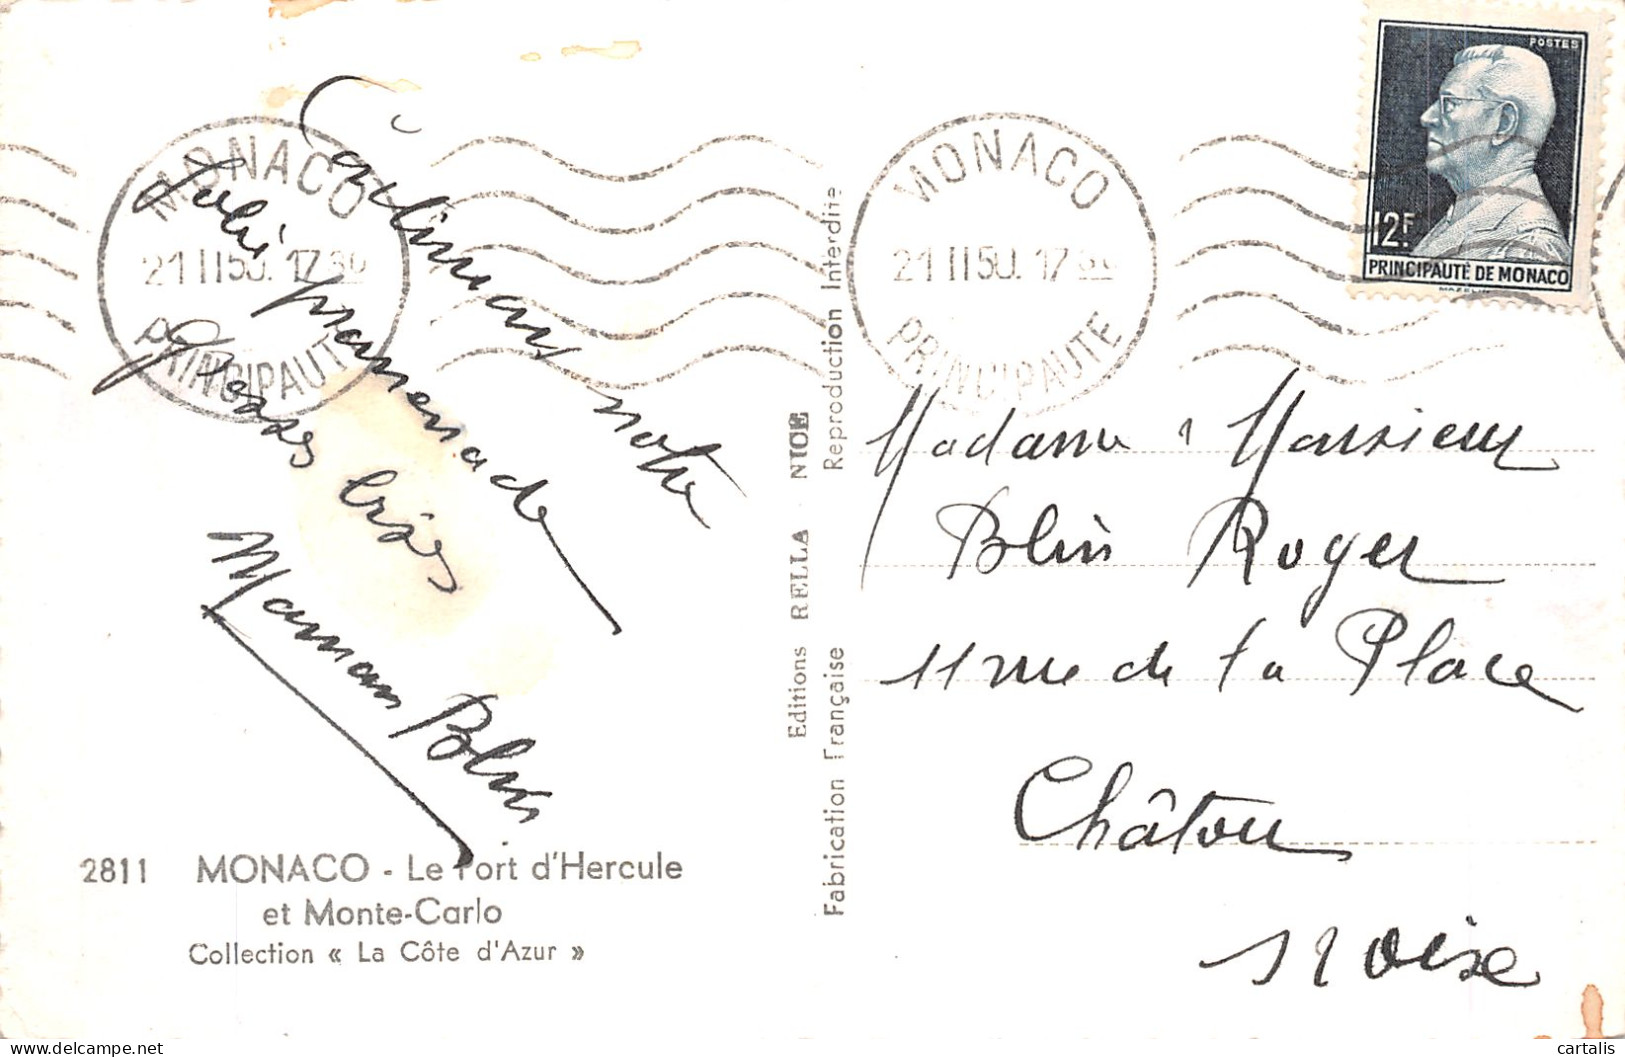 Continuons notre
jolie promenade
Gross bises
Maman Blin
2811 MONACO - Le Port d'Hercule
et Monte-Carlo
Collection « La Côte d'Azur »
MONACO
21 II 50. 17 30
PRINCIPAUTE
Editions RELLA NICE
Fabrication Française Reproduction Interdite
MONACO
21 II 50. 17 30
PRINCIPAUTE
POSTES
12F.
PRINCIPAUTÉ DE MONACO
MAZELIN
Madame, Monsieur
Blin Roger
11 rue de la Place
Châtou
S r Oise
delcampe.net
cartalis